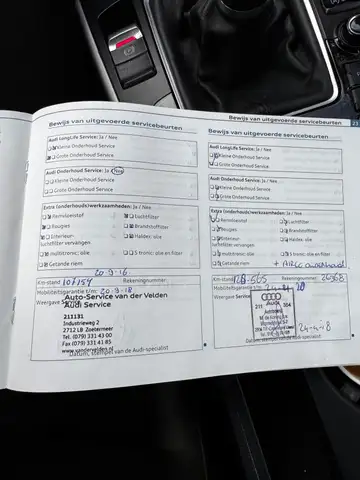 Bewijs van uitgevoerde servicebeurten
Audi LongLife Service: Ja / Nee
Kleine Onderhoud Service
Grote Onderhoud Service
Audi Onderhoud Service: Ja / Nee
Kleine Onderhoud Service
Grote Onderhoud Service
Extra (onderhouds)werkzaamheden: Ja / Nee
Remvloeistof
Luchtfilter
Bougies
Brandstoffilter
Interieur-
luchtfilter vervangen
Haldex: olie
multitronic: olie
S tronic: olie en filter
Getande riem
20-9-16
Km-stand
Rekeningnummer:
Mobiliteitsgarantie t/m: 20-9-18
Weergave Service
Auto-Service van der Velden
Audi Service
211131
Industrieweg 2
2712 LB Zoetermeer
Tel. (079) 331 43 00
Fax (079) 331 41 85
www.vandervelden.nl
Datum, stempel van de Audi-specialist
Bewijs van uitgevoerde servicebeurten
23
Audi LongLife Service: Ja / Nee
Kleine Onderhoud Service
Grote Onderhoud Service
Audi Onderhoud Service: Ja / Nee
Kleine Onderhoud Service
Grote Onderhoud Service
Extra (onderhouds)werkzaamheden: Ja / Nee
Remvloeistof
Luchtfilter
Bougies
Brandstoffilter
Interieur-
luchtfilter vervangen
Haldex: olie
multitronic: olie
S tronic: olie en filter
Getande riem
+ AIRCO onderhoud
Km-stand
Rekeningnummer:
Mobiliteitsgarantie t/m:
Weergave Service
Audi
211
304
24-4-18
Datum, stempel van de Audi-specialist